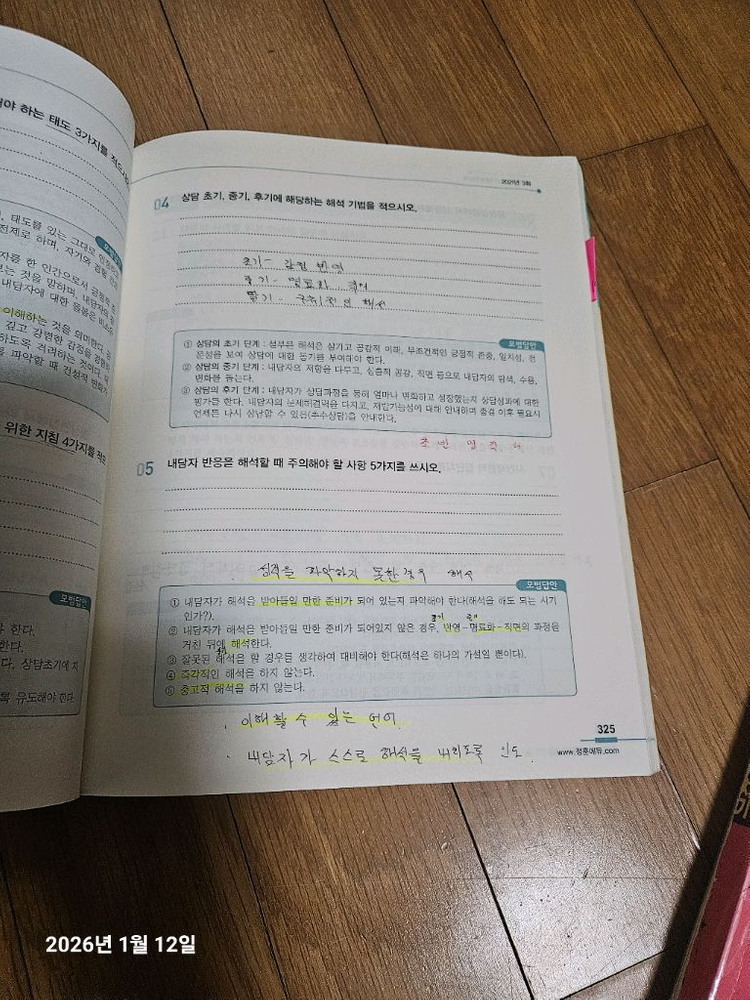 해야 하는 태도 3가지를 적으시오
모범답안
, 태도를 있는 그대로
전제로 하며, 자기와
자를 한 인간으로서
보는 것을 말하며, 내담자의
내담자에 대한
이해하는 것을 의미한다.
깊고 강렬한 감정을
하도록 격려하는 것이다.
를 파악할 때 건설적 변화가
위한 지침 4가지를 적으
모범답안
야 한다.
한다.
다. 상담초기에 지
록 유도해야 한다
2021년 3회
04 상담 초기, 중기, 후기에 해당하는 해석 기법을 적으시오.
초기 - 감정 반영
중기 - 명료화, 직면
말기 - 해석
모범답안
① 상담의 초기 단계 : 섣부른 해석은 삼가고 공감적 이해, 무조건적인 긍정적 존중, 일치성, 전
문성을 보여 상담에 대한 동기를 부여해야 한다.
② 상담의 중기 단계 : 내담자의 저항을 다루고, 심층적 공감, 직면 등으로 내담자의 탐색, 수용,
변화를 돕는다.
③ 상담의 후기 단계 : 내담자가 상담과정을 통해 얼마나 변화하고 성장했는지 상담성과에 대한
평가를 한다. 내담자의 문제해결력을 다지고, 재발가능성에 대해 안내하며 종결 이후 필요시
언제든 다시 상담할 수 있음(추수상담)을 안내한다.
05 내담자 반응을 해석할 때 주의해야 할 사항 5가지를 쓰시오.
· 성격을 파악하지 못한 경우 해석
모범답안
① 내담자가 해석을 받아들일 만한 준비가 되어 있는지 파악해야 한다(해석을 해도 되는 시기
인가?).
② 내담자가 해석을 받아들일 만한 준비가 되어있지 않은 경우, 반영-명료화-직면의 과정을
거친 뒤에 해석한다.
③ 잘못된 해석을 할 경우를 생각하여 대비해야 한다(해석은 하나의 가설일 뿐이다).
④ 즉각적인 해석을 하지 않는다.
⑤ 충고적 해석을 하지 않는다.
· 이해할 수 있는 언어
· 내담자가 스스로 해석을 내리도록 인도.
325
www.정훈에듀.com
2026년 1월 12일